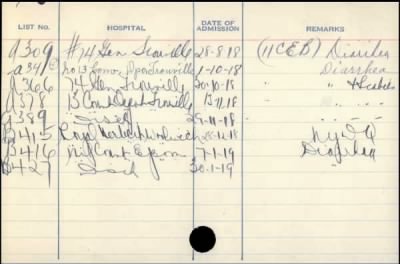 LIST No. HOSPITAL DATE OF ADMISSION REMARKS
A309 #74 Gen Trouville 28-8-18 (11CEB) Diarrhea
A341 No 13 Conv Depot Trouville 1-10-18 Diarrhea
A366 74 Gen Trouville 20-10-18 " Scabies
A378 13 Conv Depot Trouville 13-11-18 " "
A389 Disch 29-11-18 " "
B415 Royal Herbert Woolwich 28-12-18 N.Y.D
B416 Mil Conv Epsom 7-1-19 Diarrhea
B427 Disch 30-1-19